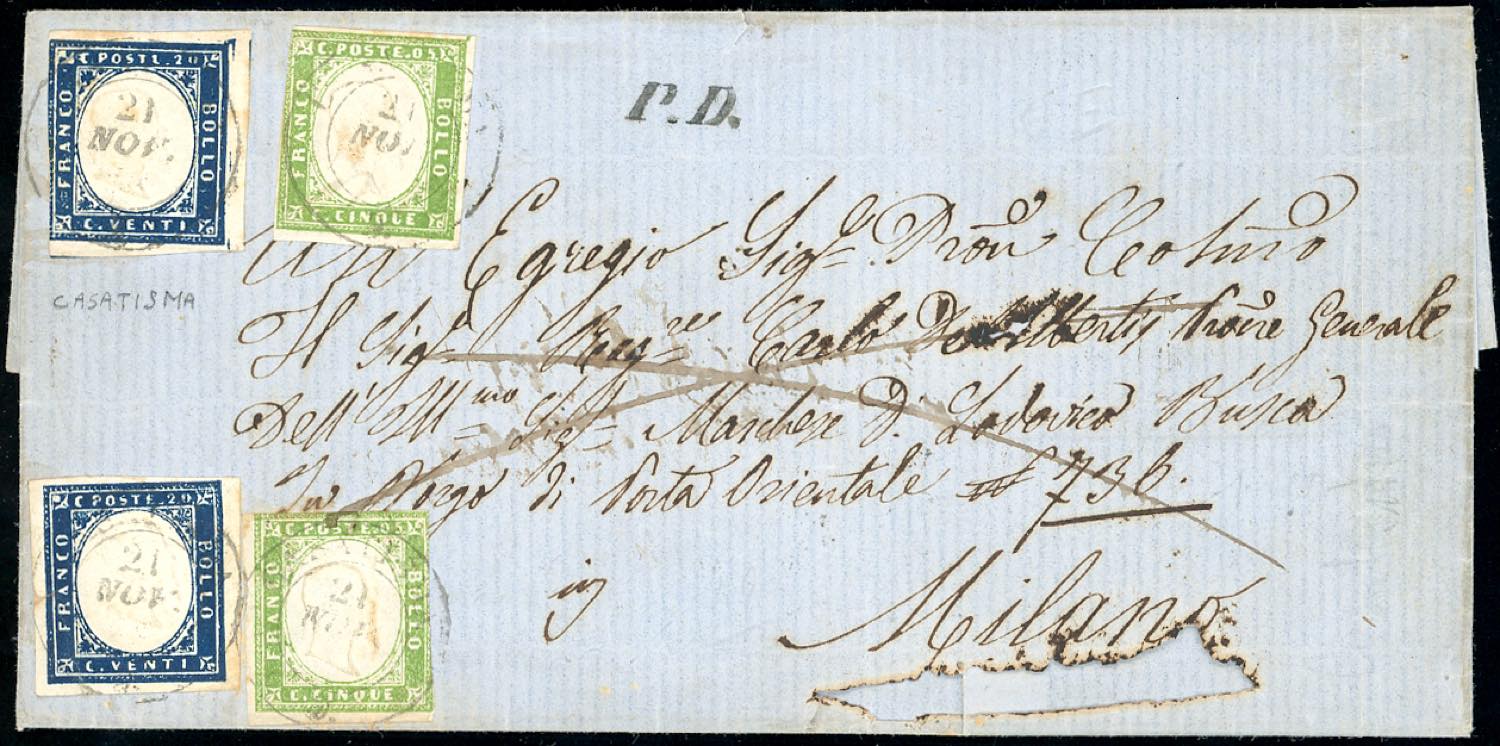 C. POSTE. 20
FRANCO
BOLLO
C. VENTI
21
NOV.
C. POSTE. 05
FRANCO
BOLLO
C. CINQUE
21
NOV
P.D.
CASATISMA
All' Egregio Sig.e Pron
Il Sig. Rag.re Carlo De Albertis Procre Generale
Dell' Ill.mo Sig. Marchese D. Lodovico Busca
Borgo di Porta Orientale N 736.
in
Milano
C. POSTE. 20
FRANCO
BOLLO
C. VENTI
21
NOV.
C. POSTE. 05
FRANCO
BOLLO
C. CINQUE
21
NOV